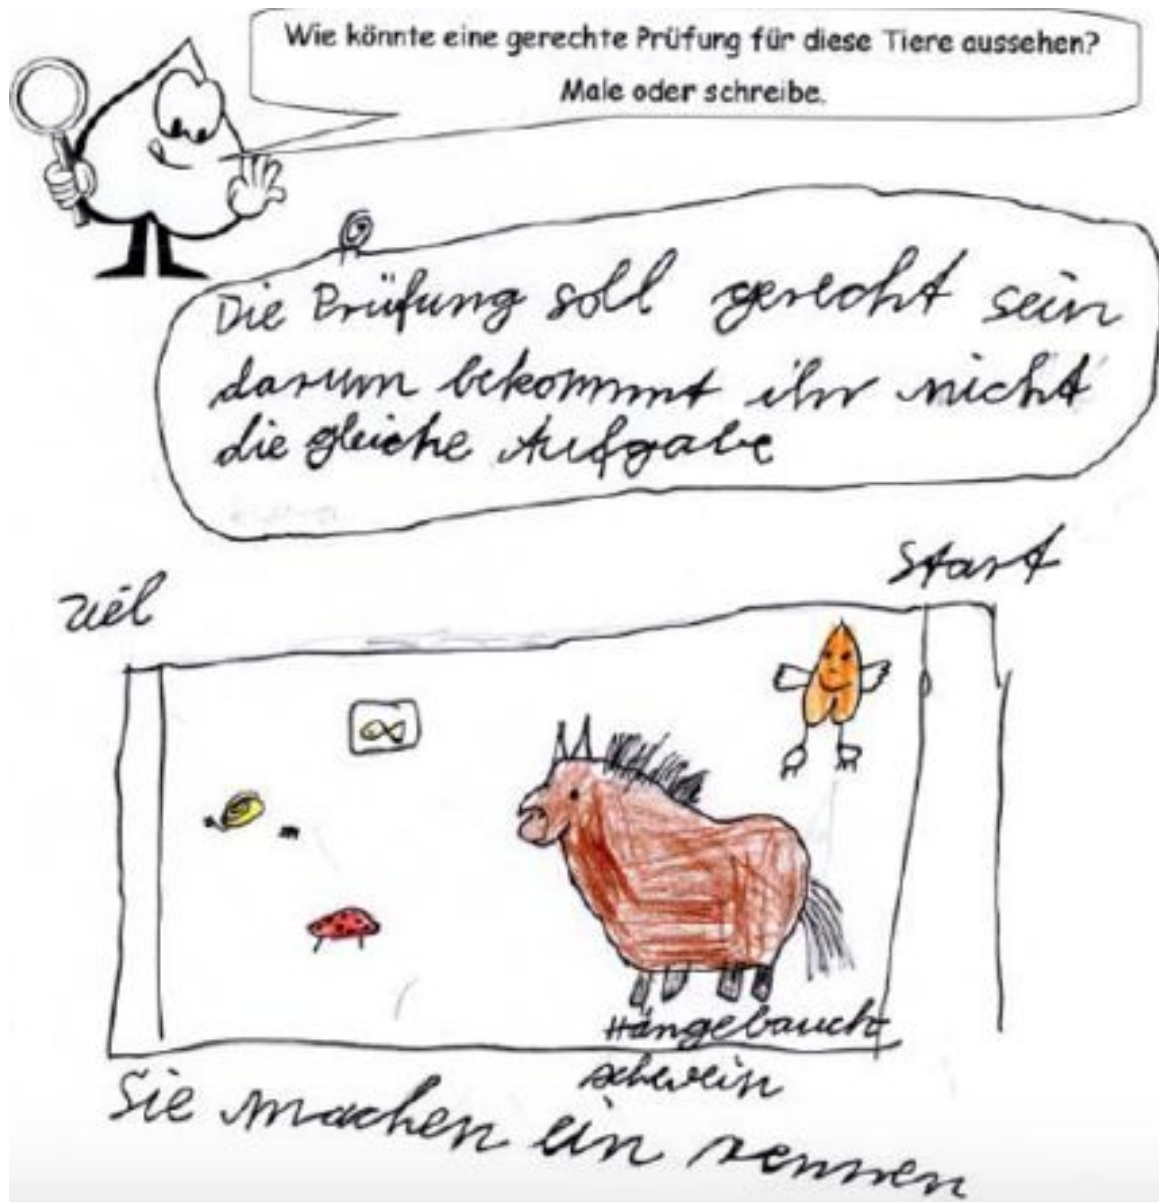 Wie könnte eine gerechte Prüfung für diese Tiere aussehen?
Male oder schreibe.
Die Prüfung soll gerecht sein
darum bekommt ihr nicht
die gleiche Aufgabe
Start
Ziel
Hängebauch
schwein
Sie machen ein rennen